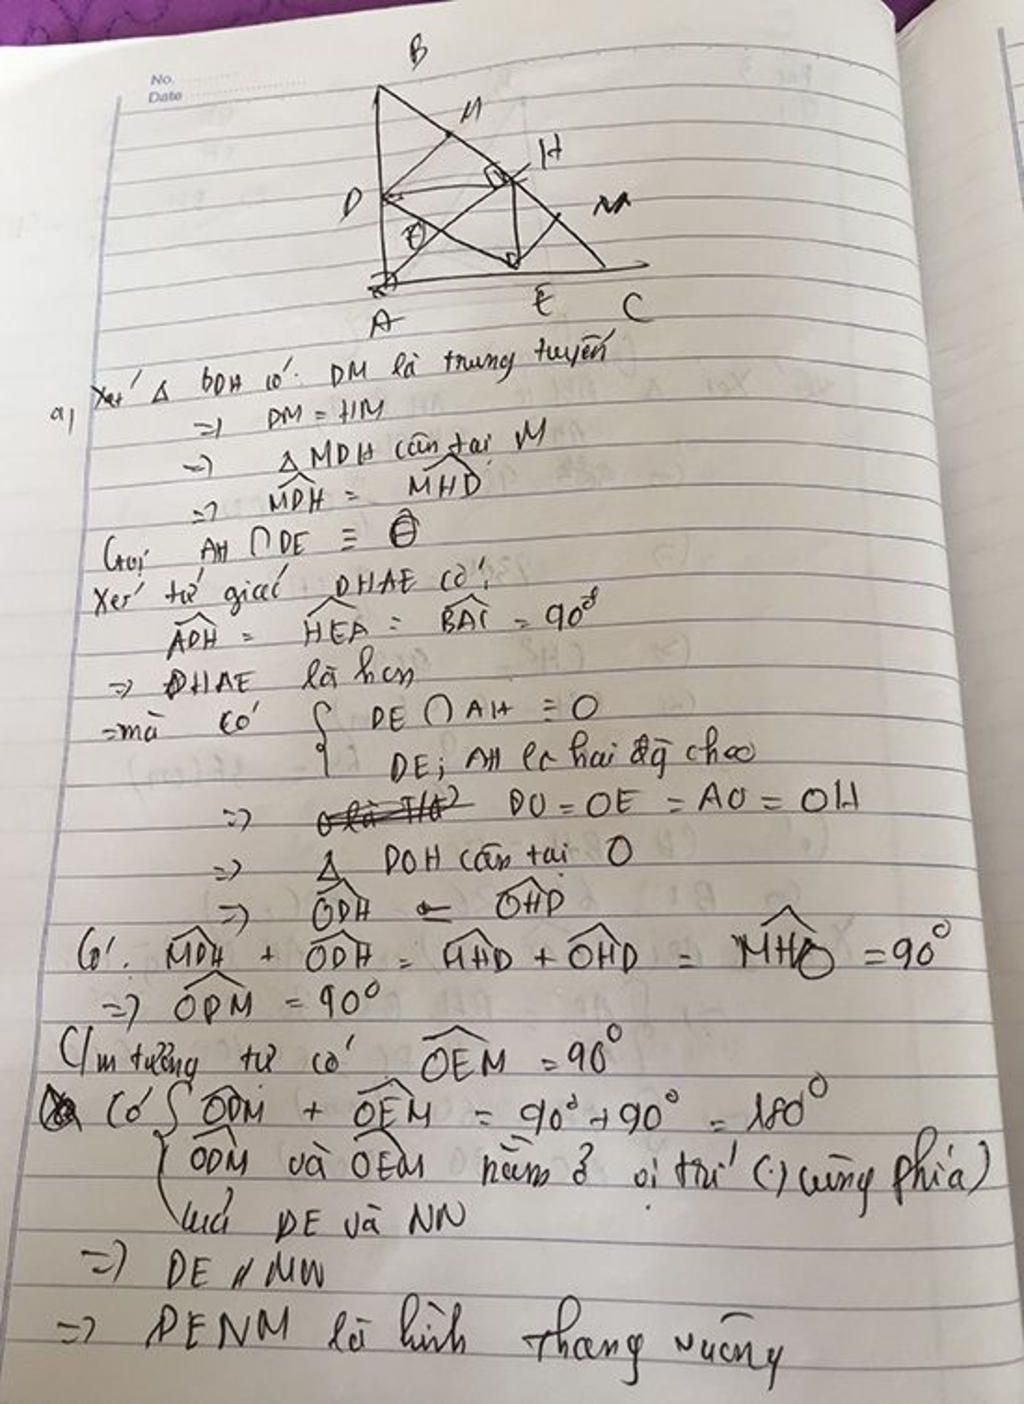 No.
Date
B
M
H
D
N
A
E
C
a) Xét Δ BDH có: DM là trung tuyến
=> DM = HM
=> Δ MDH cân tại M
=> MDH = MHD
Gọi AH ∩ DE ≡ O
Xét tứ giác DHAE có:
ADH = HEA = BAC = 90°
=> DHAE là hcn
=mà có { DE ∩ AH ≡ O
DE; AH là hai đg chéo
=> DO = OE = AO = OH
=> Δ DOH cân tại O
=> ODH = OHD
Có: MDH + ODH = MHD + OHD = MHO = 90°
=> ODM = 90°
C/m tương tự có OEM = 90°
Có { ODM + OEM = 90° + 90° = 180°
ODM và OEM nằm ở vị trí (:) cùng phía)
của DE và NN
=> DE // MN
=> DENM là hình thang vuông